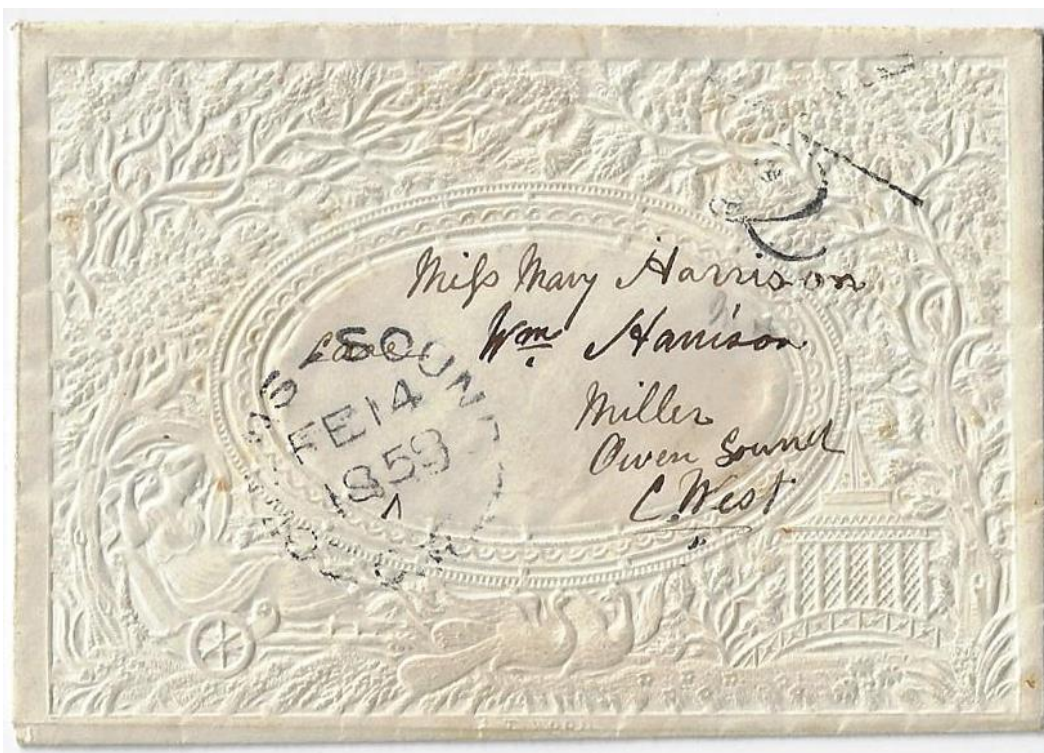 Miſs Mary Harrison
care Wm Harrison
Miller
Owen Sound
C. West
FE 14
1859